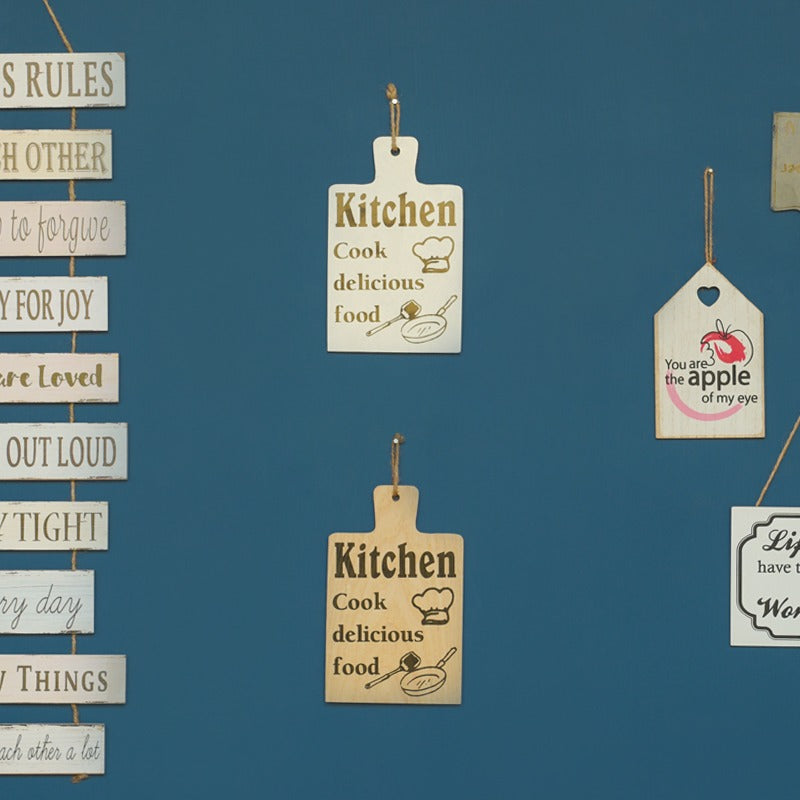 S RULES
H OTHER
to forgive
Y FOR JOY
are Loved
OUT LOUD
Y TIGHT
ry day
W THINGS
ach other a lot
Kitchen
Cook
delicious
food
Kitchen
Cook
delicious
food
You are
the apple
of my eye
Lif
have t
Wor